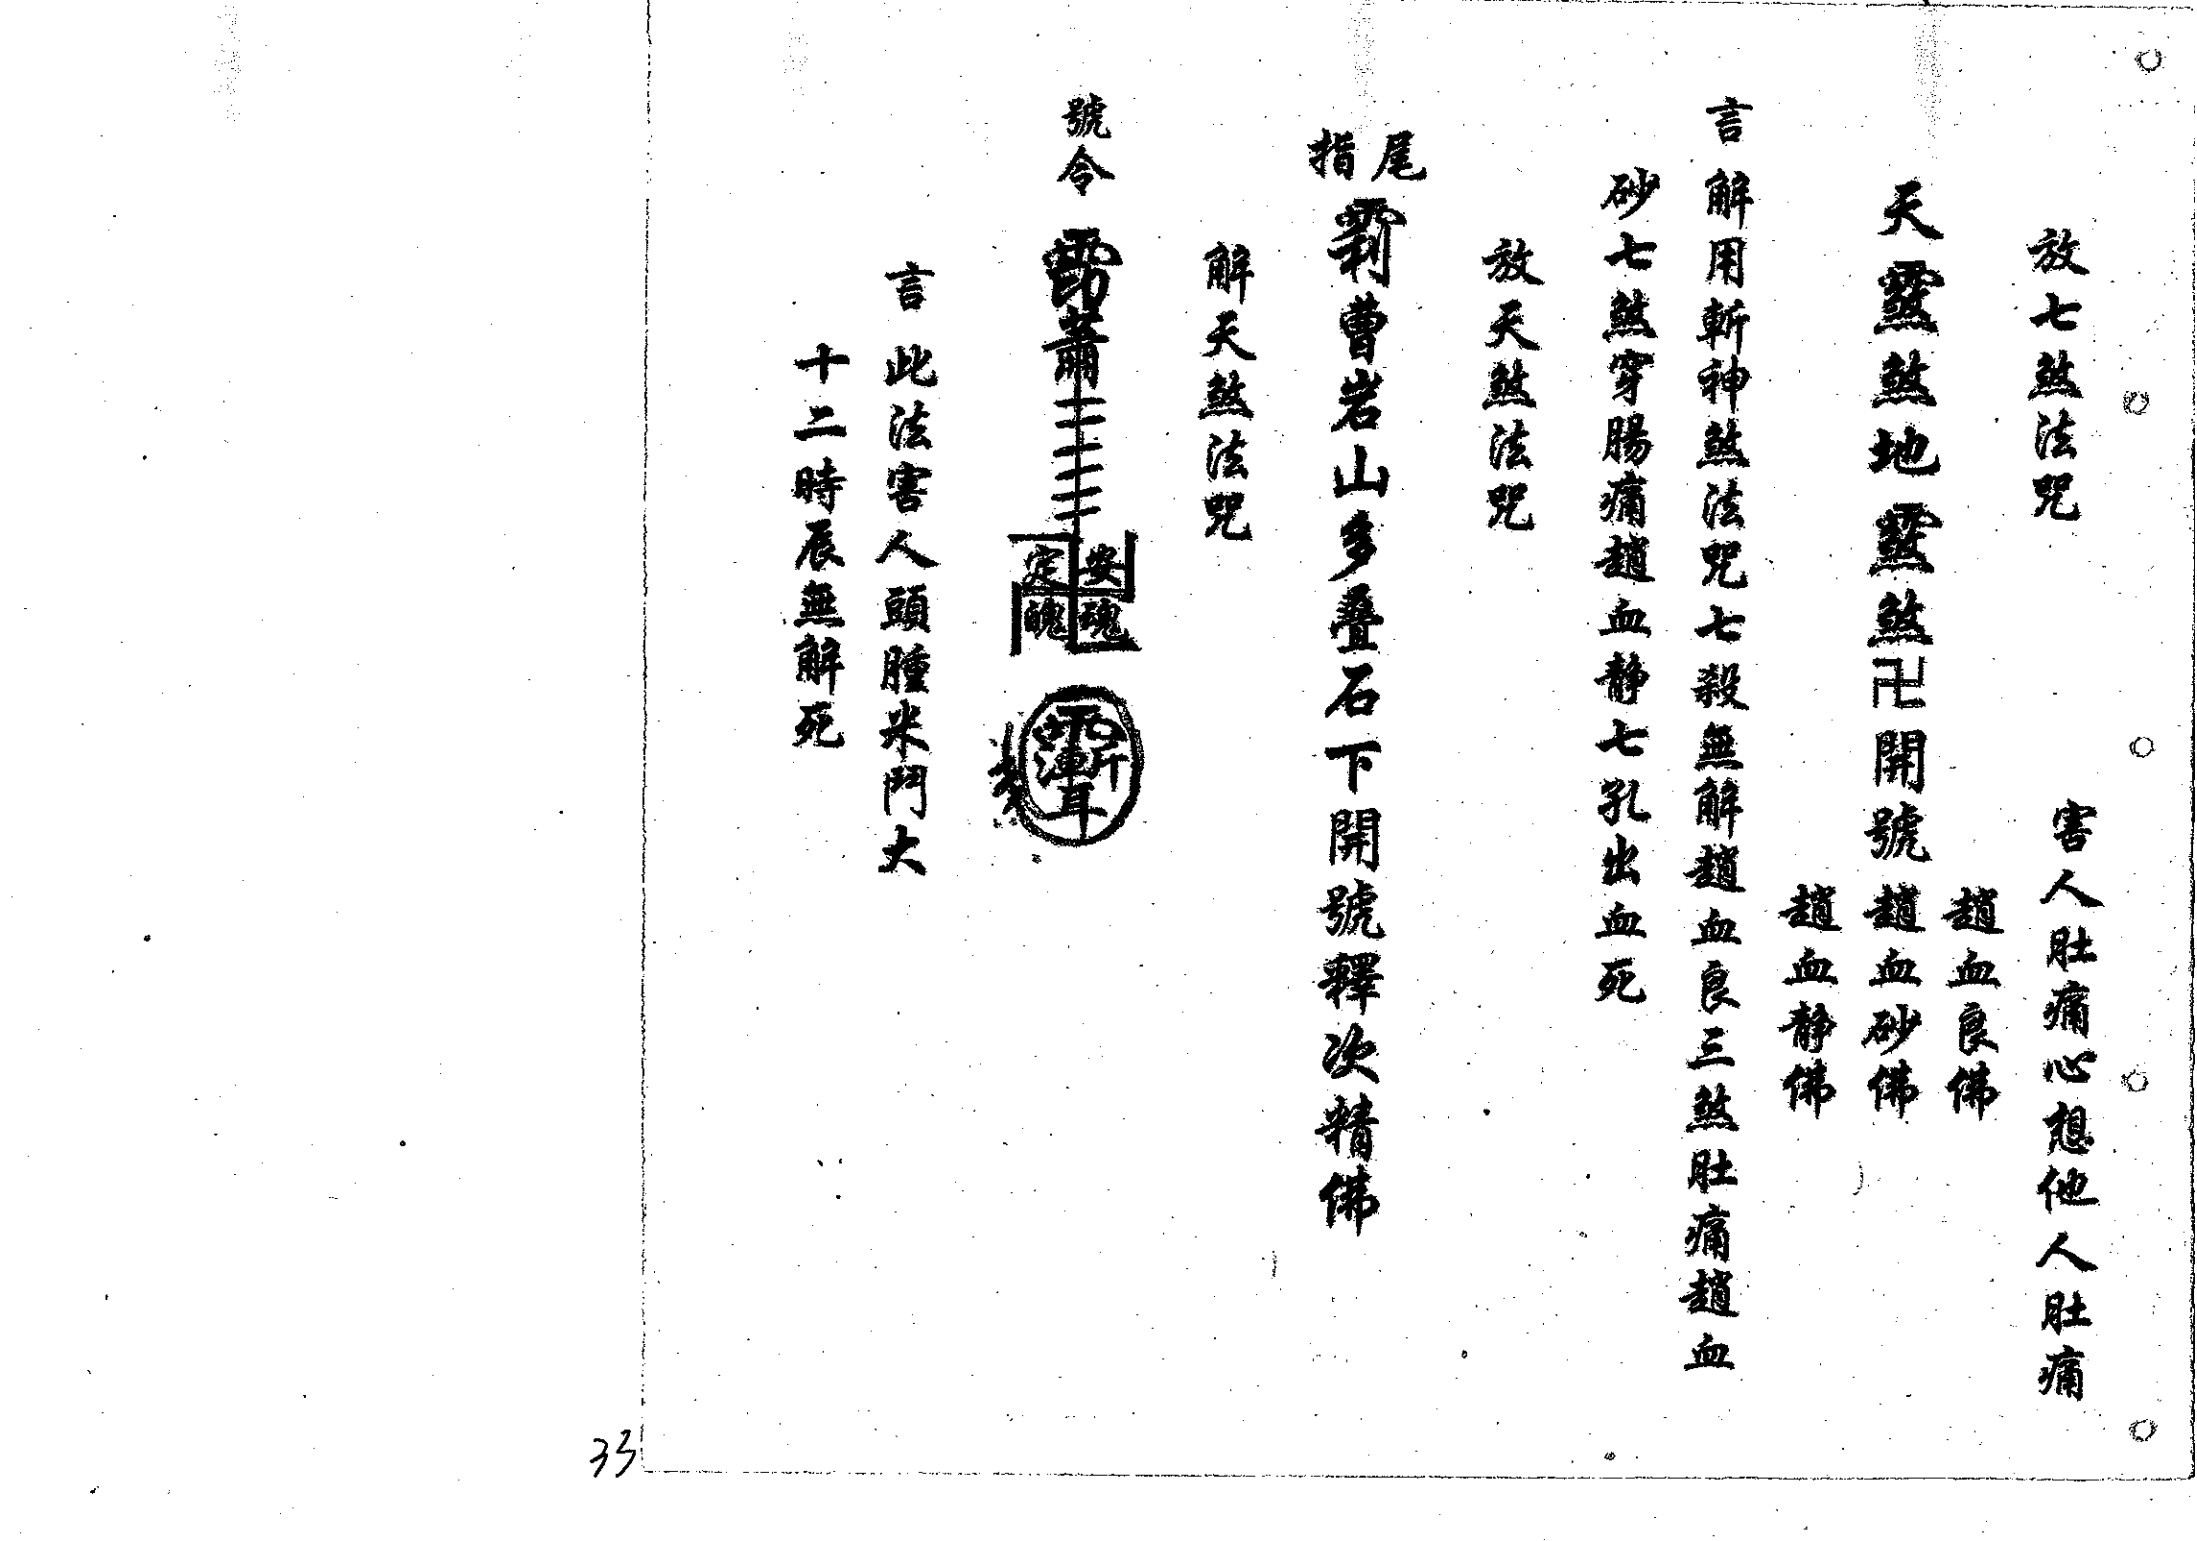 放七煞法咒 害人肚痛心想他人肚痛
天煞地煞卍開號
趙血良佛
趙血砂佛
趙血静佛
言 解用斬神煞法咒七殺無解趙血良三煞肚痛趙血
砂七煞穿腸痛趙血静七孔出血死
放天煞法咒
尾指 曹岩山多叠石下開號釋次精佛
解天煞法咒
號令
安魂定魄
言 此法害人頭腫米鬥大
十二時辰無解死
33